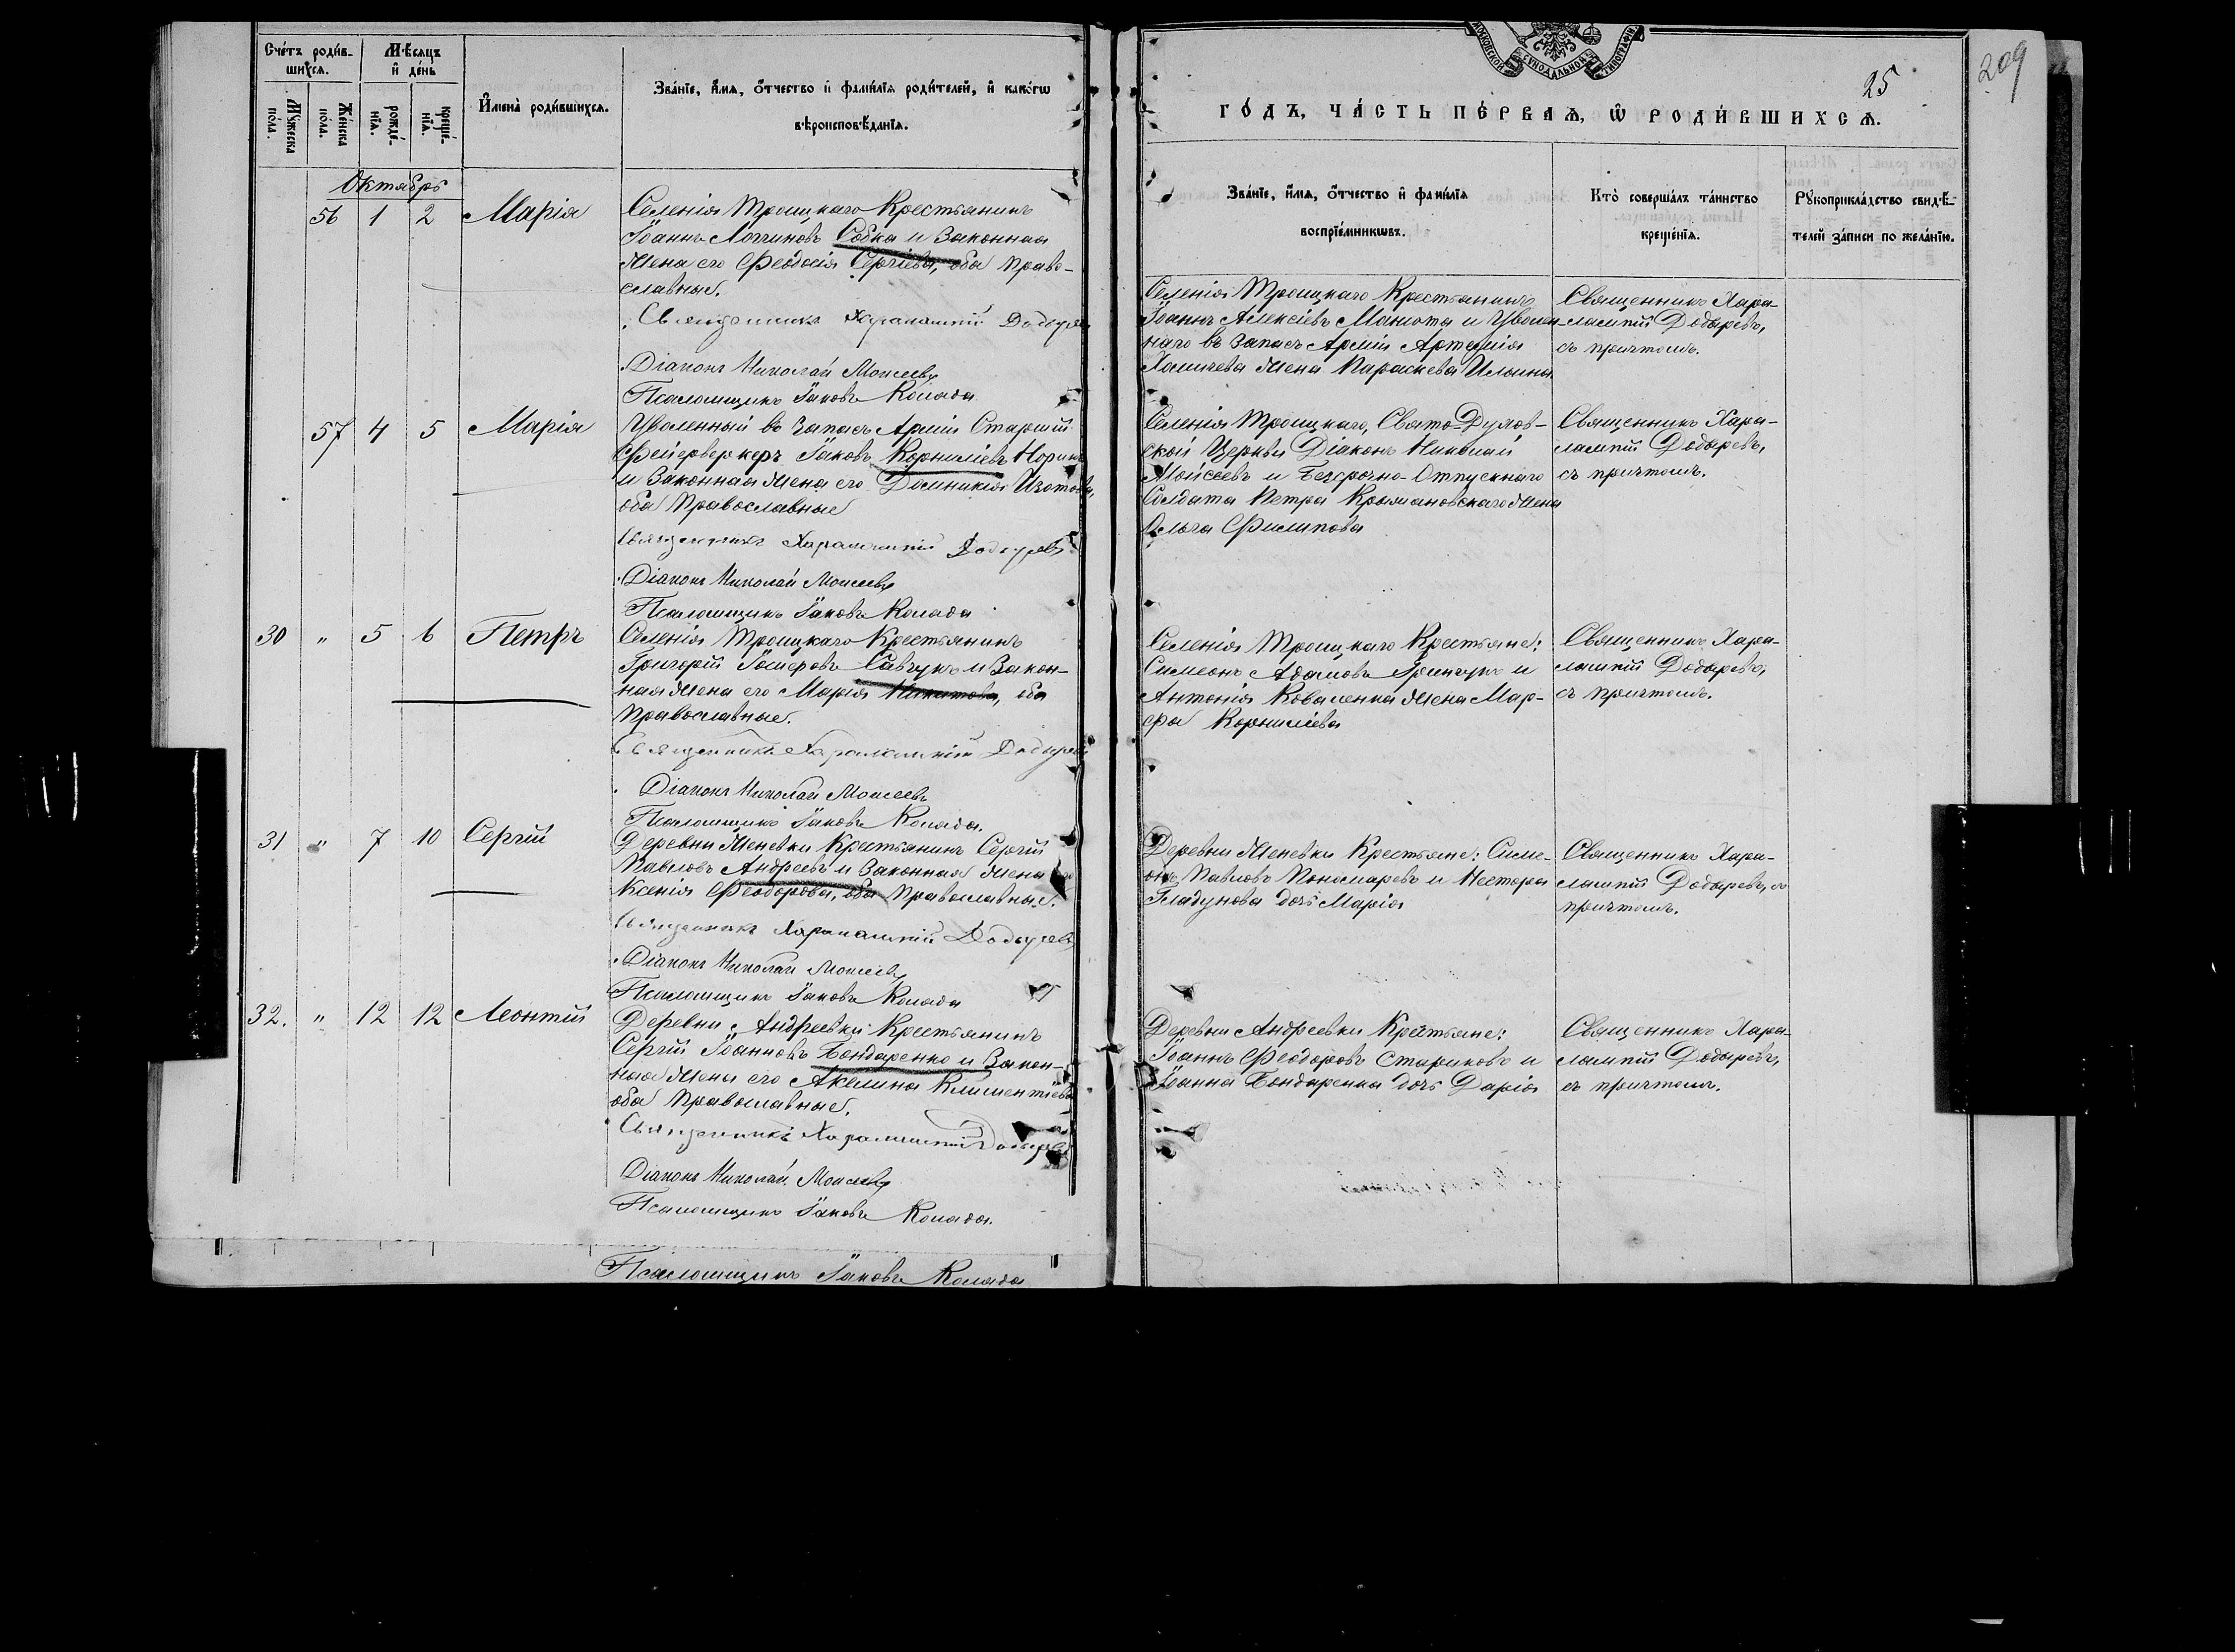 Счетъ родив-
шихся.
Мѣсяцъ
и день
Мужеска
пола.
Женска
пола.
рожде-
нія.
креще-
нія.
Имена родившихся.
Званіе, имя, отчество и фамилія родителей, и какогω
вѣроисповѣданія.
Октябрь
56 1 2 Марія
Селенія Троицкаго Крестьянинъ
Іоаннъ Собка и Законная
Жена его Феодосія Сергіева, оба Право-
славные.
Священникъ Харалампій
Діаконъ Николай Моисеевъ
Псаломщикъ Іаковъ Колада
57 4 5 Марія
Уволенный въ Запасъ Арміи Старшій
Фейерверкеръ Іаковъ Корниліевъ
и Законная Жена его Домникія Изотова,
оба Православные
Священникъ Харалампій
Діаконъ Николай Моисеевъ
Псаломщикъ Іаковъ Колада
30 " 5 6 Петръ
Селенія Троицкаго Крестьянинъ
Григорій Савчукъ и Закон-
ная Жена его Марія Никитова, оба
Православные.
Священникъ Харалампій
Діаконъ Николай Моисеевъ
Псаломщикъ Іаковъ Колада.
31 " 7 10 Сергій
Деревни Женевки Крестьянинъ Сергій
Павловъ Андреевъ и Законная Жена его
Ксенія Феодорова, оба Православные.
Священникъ Харалампій
Діаконъ Николай Моисеевъ
Псаломщикъ Іаковъ Колада
32. " 12 12 Леонтій
Деревни Андреевки Крестьянинъ
Сергій Іоанновъ Бондаренко и Закон-
ная Жена его Акилина Климентіева
оба Православные.
Священникъ Харалампій
Діаконъ Николай Моисеевъ
Псаломщикъ Іаковъ Колада.
Псаломщикъ Іаковъ Колада
МОСКОВСКОЙ СѴНОДАЛЬНОЙ ТИПОГРАФІИ
25
209
ГОДЪ, ЧАСТЬ ПЕРВАЯ, Ѡ РОДИВШИХСЯ.
Званіе, имя, отчество и фамилія
воспріемникωвъ.
Кто совершалъ таинство
крещенія.
Рукоприкладство свидѣ-
телей записи по желанію.
Селенія Троицкаго Крестьянинъ
Іоаннъ Алексіевъ Манюта и Уволен-
наго въ Запасъ Арміи Артемія
Хомичева Жена Параскева Ильина
Священникъ Хара-
лампій
съ причтомъ.
Селенія Троицкаго, Свято-Духов-
ской Церкви Діаконъ Николай
Моисеевъ и Безсрочно-Отпускнаго
Солдата Петра Крыжановскаго Жена
Ольга Филипова
Священникъ Хара-
лампій
съ причтомъ.
Селенія Троицкаго Крестьяне:
Симеонъ Адамовъ Гринчукъ и
Антонія Коваленка Жена Мар-
фа Корниліева
Священникъ Хара-
лампій
съ причтомъ.
Деревни Женевки Крестьяне: Симе-
онъ Павловъ Пономаревъ и Нестора
Гладунова дочь Марія
Священникъ Хара-
лампій съ
причтомъ.
Деревни Андреевки Крестьяне:
Іоаннъ Феодоровъ Стариковъ и
Іоанна Бондаренка дочь Дарія
Священникъ Хара-
лампій
съ причтомъ.